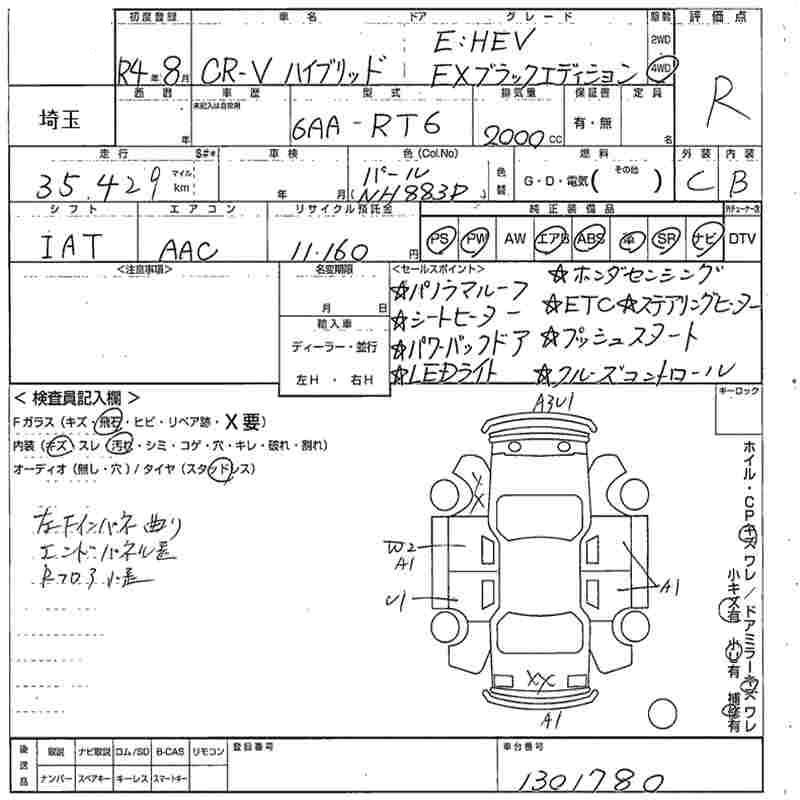 初度登録 車名 ドア グレード 駆動 評価点
R4年8月 CR-V ハイブリッド E:HEV 2WD
EXブラックエディション 4WD R
埼玉 西暦 車歴 型式 排気量 保証書 定員
未記入は自家用
年 6AA-RT6 2000cc 有・無 名
走行 $#* 車検 色(Col.No) 燃料 外装 内装
35,429 マイル km 年 月 パール (NH883P) 色替 G・D・電気( その他 ) C B
シフト エアコン リサイクル預託金 純正装備品
IAT AAC 11,160円 PS PW AW エアB ABS 革 SR ナビ DTV
<注意事項> 名変期限 <セールスポイント>
月 日
輸入車
ディーラー・並行
左H ・ 右H
☆パノラマルーフ ☆ホンダセンシング
☆シートヒーター ☆ETC☆ステアリングヒーター
☆パワーバックドア ☆プッシュスタート
☆LEDライト ☆クルーズコントロール
<検査員記入欄> キーロック
Fガラス(キズ・飛石・ヒビ・リペア跡・X要)
内装(キズ・スレ・汚れ・シミ・コゲ・穴・キレ・破れ・割れ)
オーディオ(無し・穴)/タイヤ(スタッドレス)
左Fインパネ曲り
エンドパネル歪
A3U1
XX
W2
A1
U1
A1
XX
A1
ホイル・CPキズワレ/ドアミラーキズワレ
小キズ有 小U有 補修有
後送品 取説 ナビ取説 ロム/SD B-CAS リモコン 登録番号 車台番号
ナンバー スペアキー キーレス スマートキー 1301780